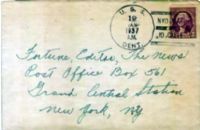 U. S.
19
JAN
1937
A.M.
DENT.
Fortune, Editor, The News
Post Office Box 561
Grand Central Station
New York, NY